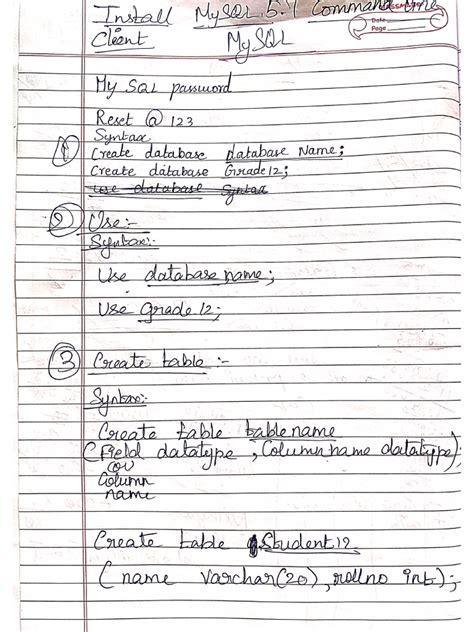 Install MySQL 5.1 Command line
Client MySQL
Date
Page
My SQL password
Reset @ 123
Syntax
① Create database database Name;
Create database Grade12;
use database Syntax
② Use:-
Syntax:-
Use database name;
Use Grade 12;
③ Create table :-
Syntax:-
Create table table name
(Field datatype, Column name datatype);
or
Column
name
Create table Student12
(name varchar(20), rollno int);